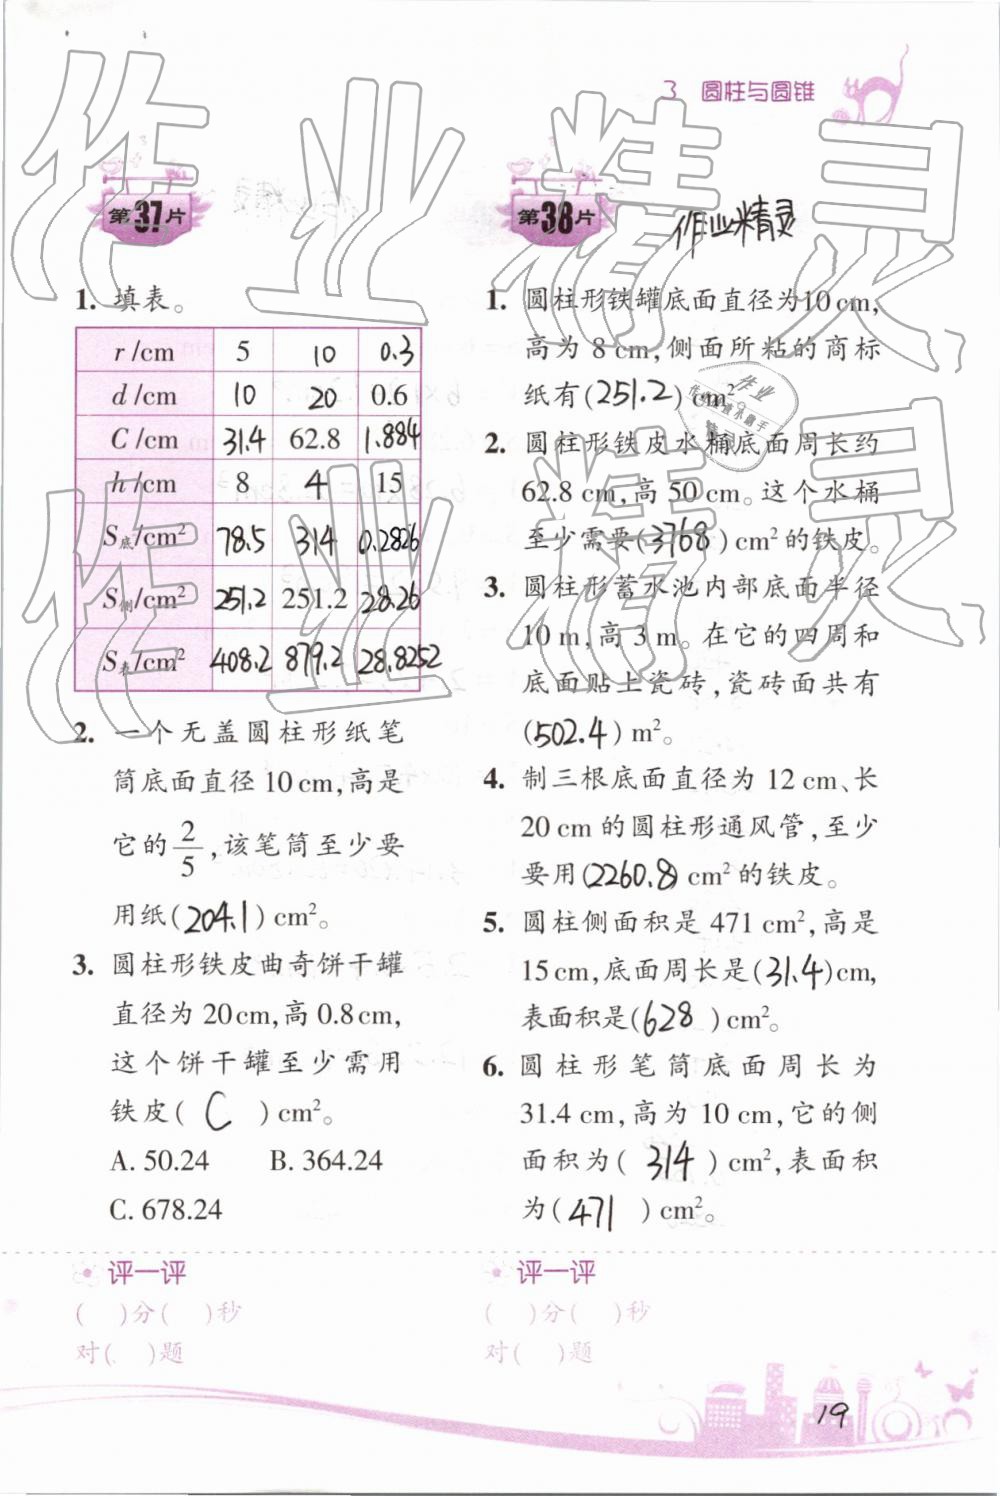 3 圆柱与圆锥
作业精灵
第37片
1. 填表。
r/cm 5 10 0.3
d/cm 10 20 0.6
C/cm 31.4 62.8 1.884
h/cm 8 4 15
S底/cm² 78.5 314 0.2826
S侧/cm² 251.2 251.2 28.26
S表/cm² 408.2 879.2 28.8252
2. 一个无盖圆柱形纸笔
筒底面直径10 cm,高是
它的2/5,该笔筒至少要
用纸(204.1)cm²。
3. 圆柱形铁皮曲奇饼干罐
直径为20cm,高0.8cm,
这个饼干罐至少需用
铁皮( C )cm²。
A. 50.24 B. 364.24
C. 678.24
评一评
( )分( )秒
对( )题
第38片
作业精灵
1. 圆柱形铁罐底面直径为10cm,
高为8cm,侧面所粘的商标
纸有(251.2)cm²。
2. 圆柱形铁皮水桶底面周长约
62.8 cm,高50cm。这个水桶
至少需要(3768)cm²的铁皮。
3. 圆柱形蓄水池内部底面半径
10m,高3m。在它的四周和
底面贴上瓷砖,瓷砖面共有
(502.4)m²。
4. 制三根底面直径为12cm、长
20cm的圆柱形通风管,至少
要用(2260.8)cm²的铁皮。
5. 圆柱侧面积是471 cm²,高是
15cm,底面周长是(31.4)cm,
表面积是(628)cm²。
6. 圆柱形笔筒底面周长为
31.4 cm,高为10 cm,它的侧
面积为( 314 )cm²,表面积
为(471 )cm²。
评一评
( )分( )秒
对( )题
19